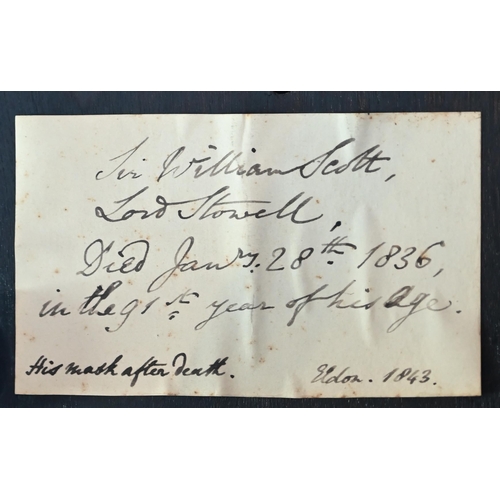 Sir William Scott,
Lord Stowell,
Died Janry. 28th. 1836,
in the 91st. year of his Age.
His mask after death.
Eldon. 1843.